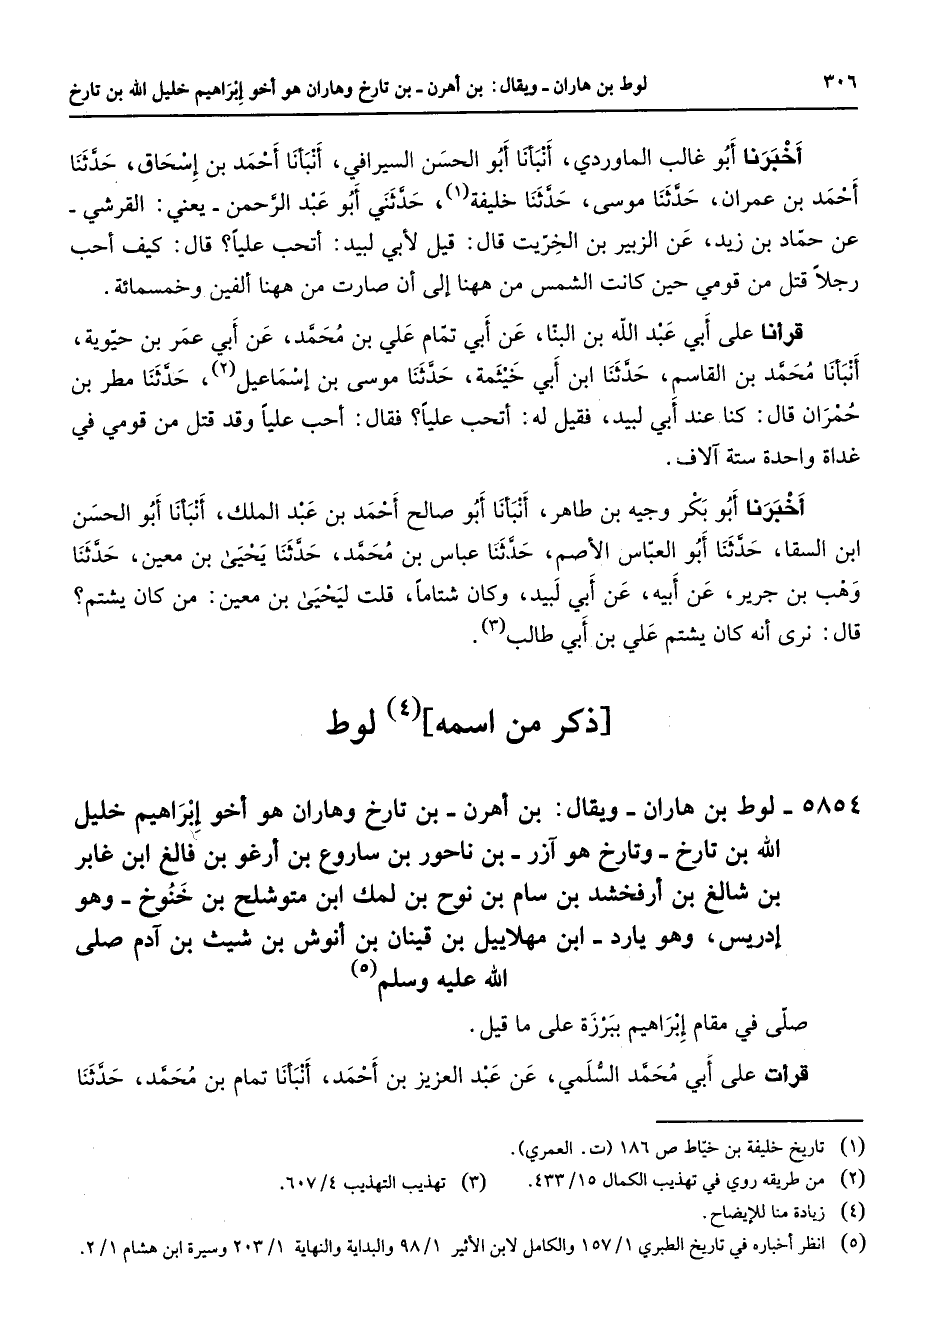 ٣٠٦ لوط بن هاران ـ ويقال: بن أهرن ـ بن تارخ وهاران هو أخو إبْرَاهيم خليل الله بن تارخ
أَخْبَرَنا أَبُو غالب الماوردي، أَنْبَأنَا أَبو الحسَن السيرافي، أَنْبَأنَا أَحْمَد بن إِسْحَاق، حَدَّثَنَا
أَحْمَد بن عمران، حَدَّثَنَا موسى، حَدَّثَنَا خليفة(١)، حَدَّثَني أَبُو عَبْد الرَّحمن ـ يعني: القرشي ـ
عن حمّاد بن زيد، عَن الزبير بن الخِرّيت قال: قيل لأبي لبيد: أتحب علياً؟ قال: كيف أحب
رجلاً قتل من قومي حين كانت الشمس من ههنا إلى أن صارت من ههنا ألفين وخمسمائة.
قرأنا على أَبي عَبْد اللّه بن البنّا، عَن أَبي تمّام عَلي بن مُحَمَّد، عَن أَبي عمَر بن حيّوية،
أَنْبَأنَا مُحَمَّد بن القاسم، حَدَّثَنَا ابن أَبي خَيْثَمة، حَدَّثَنَا موسى بن إسْمَاعيل(٢)، حَدَّثَنَا مطر بن
حُمْرَان قال: كنا عند أَبي لبيد، فقيل له: أتحب علياً؟ فقال: أحب علياً وقد قتل من قومي في
غداة واحدة ستة آلاف.
أَخْبَرَنا أَبُو بَكْر وجيه بن طاهر، أَنْبَأنَا أَبُو صالح أَحْمَد بن عَبْد الملك، أَنْبَأنَا أَبُو الحسَن
ابن السقا، حَدَّثَنَا أَبُو العبّاس الأصم، حَدَّثَنَا عباس بن مُحَمَّد، حَدَّثَنَا يَحْيَىٰ بن معين، حَدَّثَنَا
وَهْب بن جرير، عَن أَبيه، عَن أَبي لَبيد، وكان شتاماً، قلت ليَحْيَىٰ بن معين: من كان يشتم؟
قال: نرى أنه كان يشتم عَلي بن أَبي طالب(٣).
[ذكر من اسمه](٤) لوط
٥٨٥٤ ـ لوط بن هاران ـ ويقال: بن أهرن ـ بن تارخ وهاران هو أخو إبْرَاهيم خليل
الله بن تارخ ـ وتارخ هو آزر ـ بن ناحور بن ساروع بن أرغو بن فالغ ابن غابر
بن شالغ بن أرفخشد بن سام بن نوح بن لمك ابن متوشلح بن خَنُوخ ـ وهو
إدريس، وهو يارد ـ ابن مهلاييل بن قينان بن أنوش بن شيث بن آدم صلى
الله عليه وسلم(٥)
صلّى في مقام إبْرَاهيم ببَرْزَة على ما قيل.
قرأت على أَبي مُحَمَّد السُّلَمي، عَن عَبْد العزيز بن أَحْمَد، أَنْبَأنَا تمام بن مُحَمَّد، حَدَّثَنَا
(١) تاريخ خليفة بن خيّاط ص ١٨٦ (ت. العمري).
(٢) من طريقه روي في تهذيب الكمال ١٥/ ٤٣٣. (٣) تهذيب التهذيب ٤/ ٦٠٧.
(٤) زيادة منا للإيضاح.
(٥) انظر أخباره في تاريخ الطبري ١/ ١٥٧ والكامل لابن الأثير ١/ ٩٨ والبداية والنهاية ١/ ٢٠٣ وسيرة ابن هشام ١/ ٢.